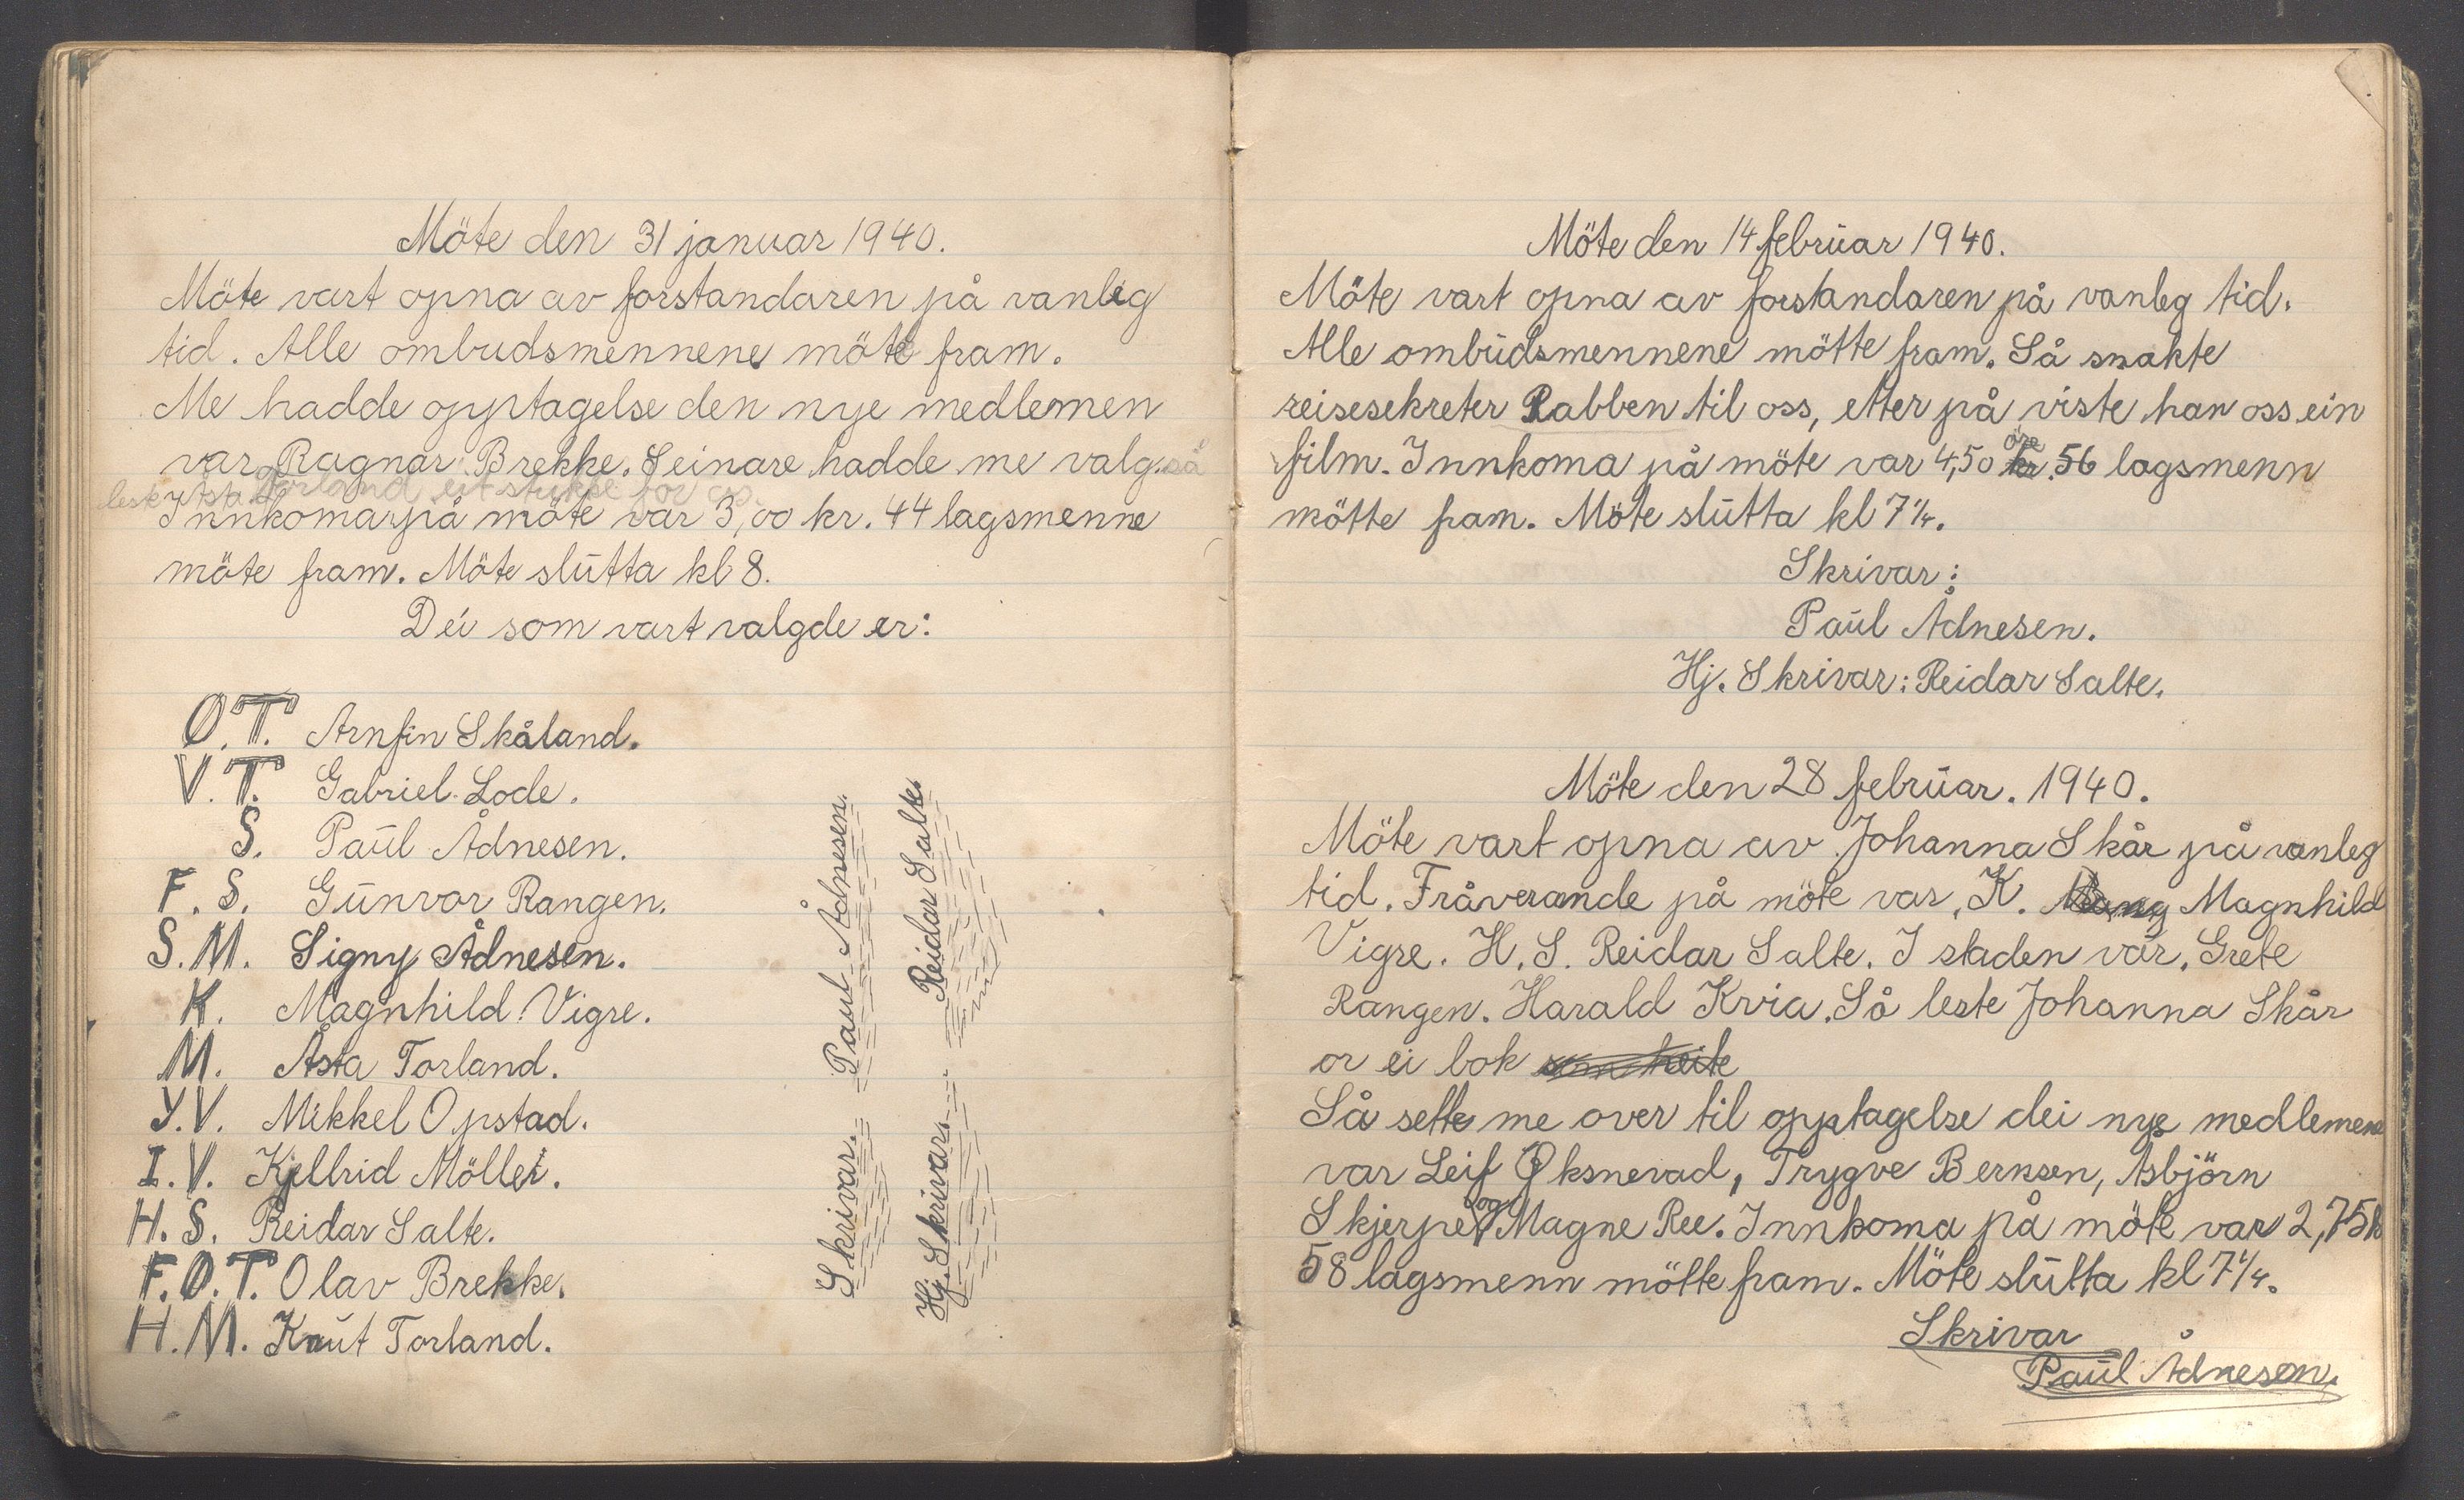 Möte den 31 januar 1940.
Möte vart opna av forstandaren på vanleg
tid. Alle ombudsmennene möte fram.
Me hadde opptagelse den nye medlemen
var Ragnar Brekke. Seinare hadde me valg. så
las Åsta Torland eit stykke for os.
Innkoma på möte var 3,00 kr. 44 lagsmenne
möte fram. Möte slutta kl 8.
Dei som vart valgde er:
O.T. Arnfin Skåland.
V.T. Gabriel Lode.
S. Paul Ådnesen.
F.S. Gunvor Rangen.
S.M. Signy Ådnesen.
K. Magnhild Vigre.
M. Åsta Torland.
Y.V. Mikkel Opstad.
I.V. Kjellrid Möller.
H.S. Reidar Salte.
F.O.T. Olav Brekke.
H.M. Knut Torland.
Skrivar. Paul Ådnesen.
Hj. Skrivar. Reidar Salte.
Möte den 14 februar 1940.
Möte vart opna av forstandaren på vanleg tid.
Alle ombudsmennene mötte fram. Så snakte
reisesekreter Rabben til oss, etter på viste han oss ein
film. Innkoma på möte var 4,50 kr öre. 56 lagsmenn
mötte fram. Möte slutta kl 7 1/4.
Skrivar:
Paul Ådnesen.
Hj. Skrivar: Reidar Salte.
Möte den 28 februar. 1940.
Möte vart opna av Johanna Skår på vanleg
tid. Fråverande på möte var, K. Magnhild
Vigre. H.S. Reidar Salte. I staden var, Grete
Rangen. Harald Kvia. Så leste Johanna Skår
or ei bok som heite
Så sette me over til opptagelse dei nye medlemene
var Leif Oksnevad, Trygve Bernsen, Asbjörn
Skjerpe og Magne Ree. Innkoma på möte var 2,75 k
58 lagsmenn mötte fram. Möte slutta kl 7 1/4.
Skrivar
Paul Ådnesen.